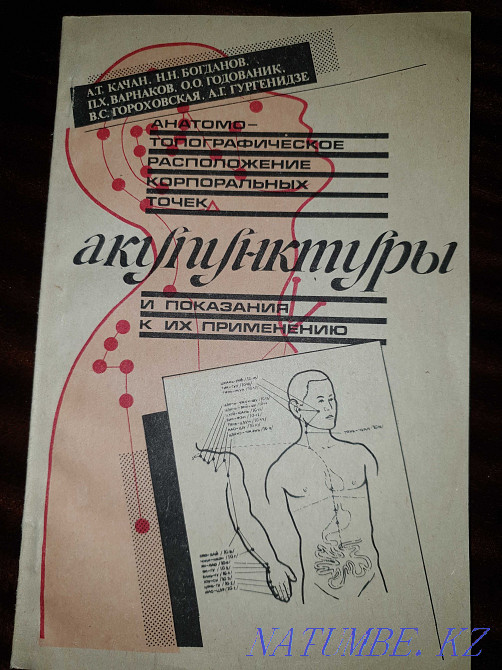 А.Т. КАЧАН, Н.Н. БОГДАНОВ,
П.Х. ВАРНАКОВ, О.О. ГОДОВАНИК,
В.С. ГОРОХОВСКАЯ, А.Г. ГУРГЕНИДЗЕ
АНАТОМО-
ТОПОГРАФИЧЕСКОЕ
РАСПОЛОЖЕНИЕ
КОРПОРАЛЬНЫХ
ТОЧЕК
акупунктуры
И ПОКАЗАНИЯ
К ИХ ПРИМЕНЕНИЮ
NATUMBE.KZ